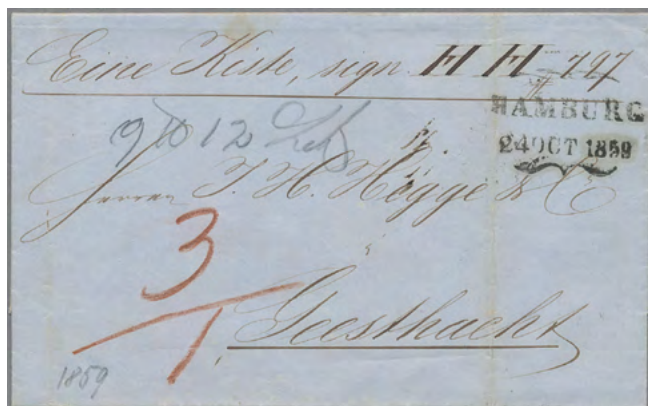 Eine Kiste, sign. HH 797
HAMBURG
24 OCT 1859
9 12
Herren J. H. Högge & C
3
1
Geesthacht
1859